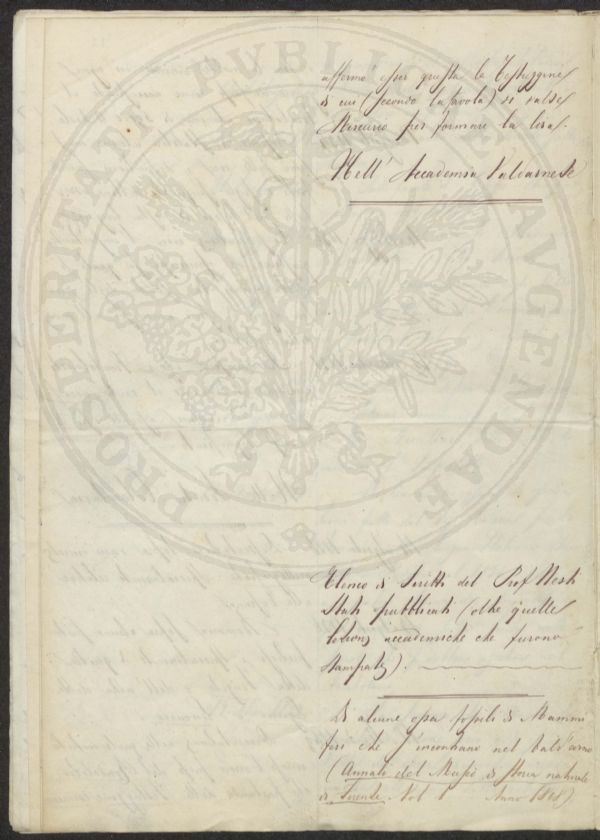 affermò esser questa la Testuggine
di cui (secondo la favola) si valse
Mercurio per formare la lira.
Nell' Accademia Valdarnese
Elenco di Scritti del Prof Nesti
Stati pubblicati (oltre quelle
lezioni accademiche che furono
stampate).
Di alcune ossa fossili di Mammi
feri che s'incontrano nel Val d'arno
(Annali del Museo di Storia naturale
di Firenze. Vol 1 Anno 1808)
PROSPERITATI PVBLICAE AVGENDAE